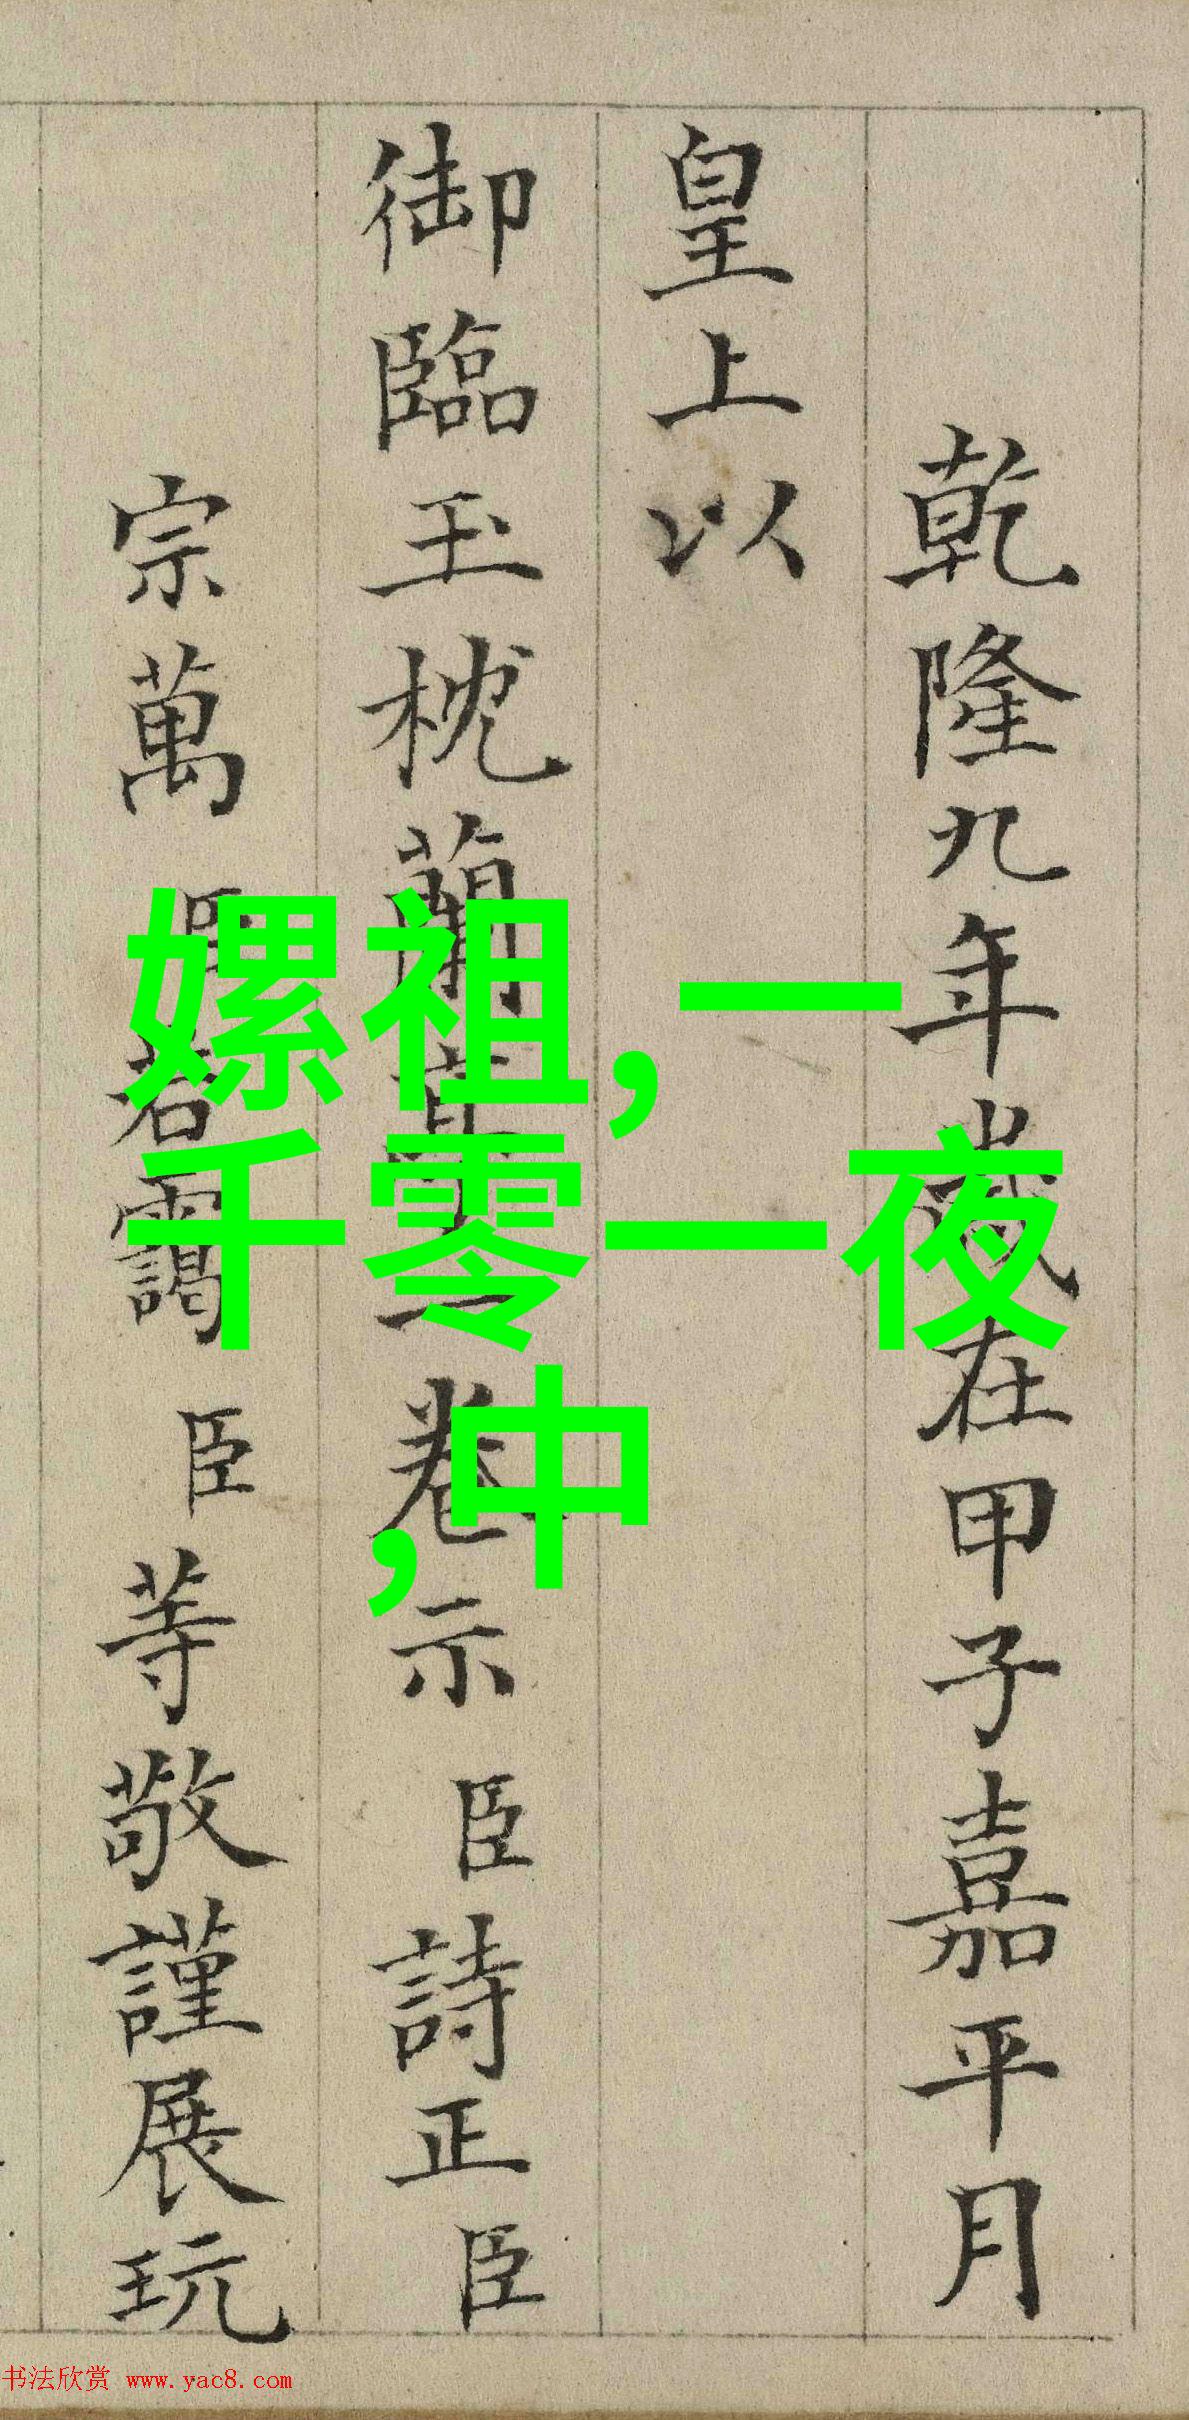 乾隆九年歲在甲子嘉平月
皇上以
御臨玉枕蘭亭一卷示臣詩正臣
宗萬臣若靄臣等敬謹展玩
嫘祖,一
千零一夜
,中
书法欣赏 www.yac8.com